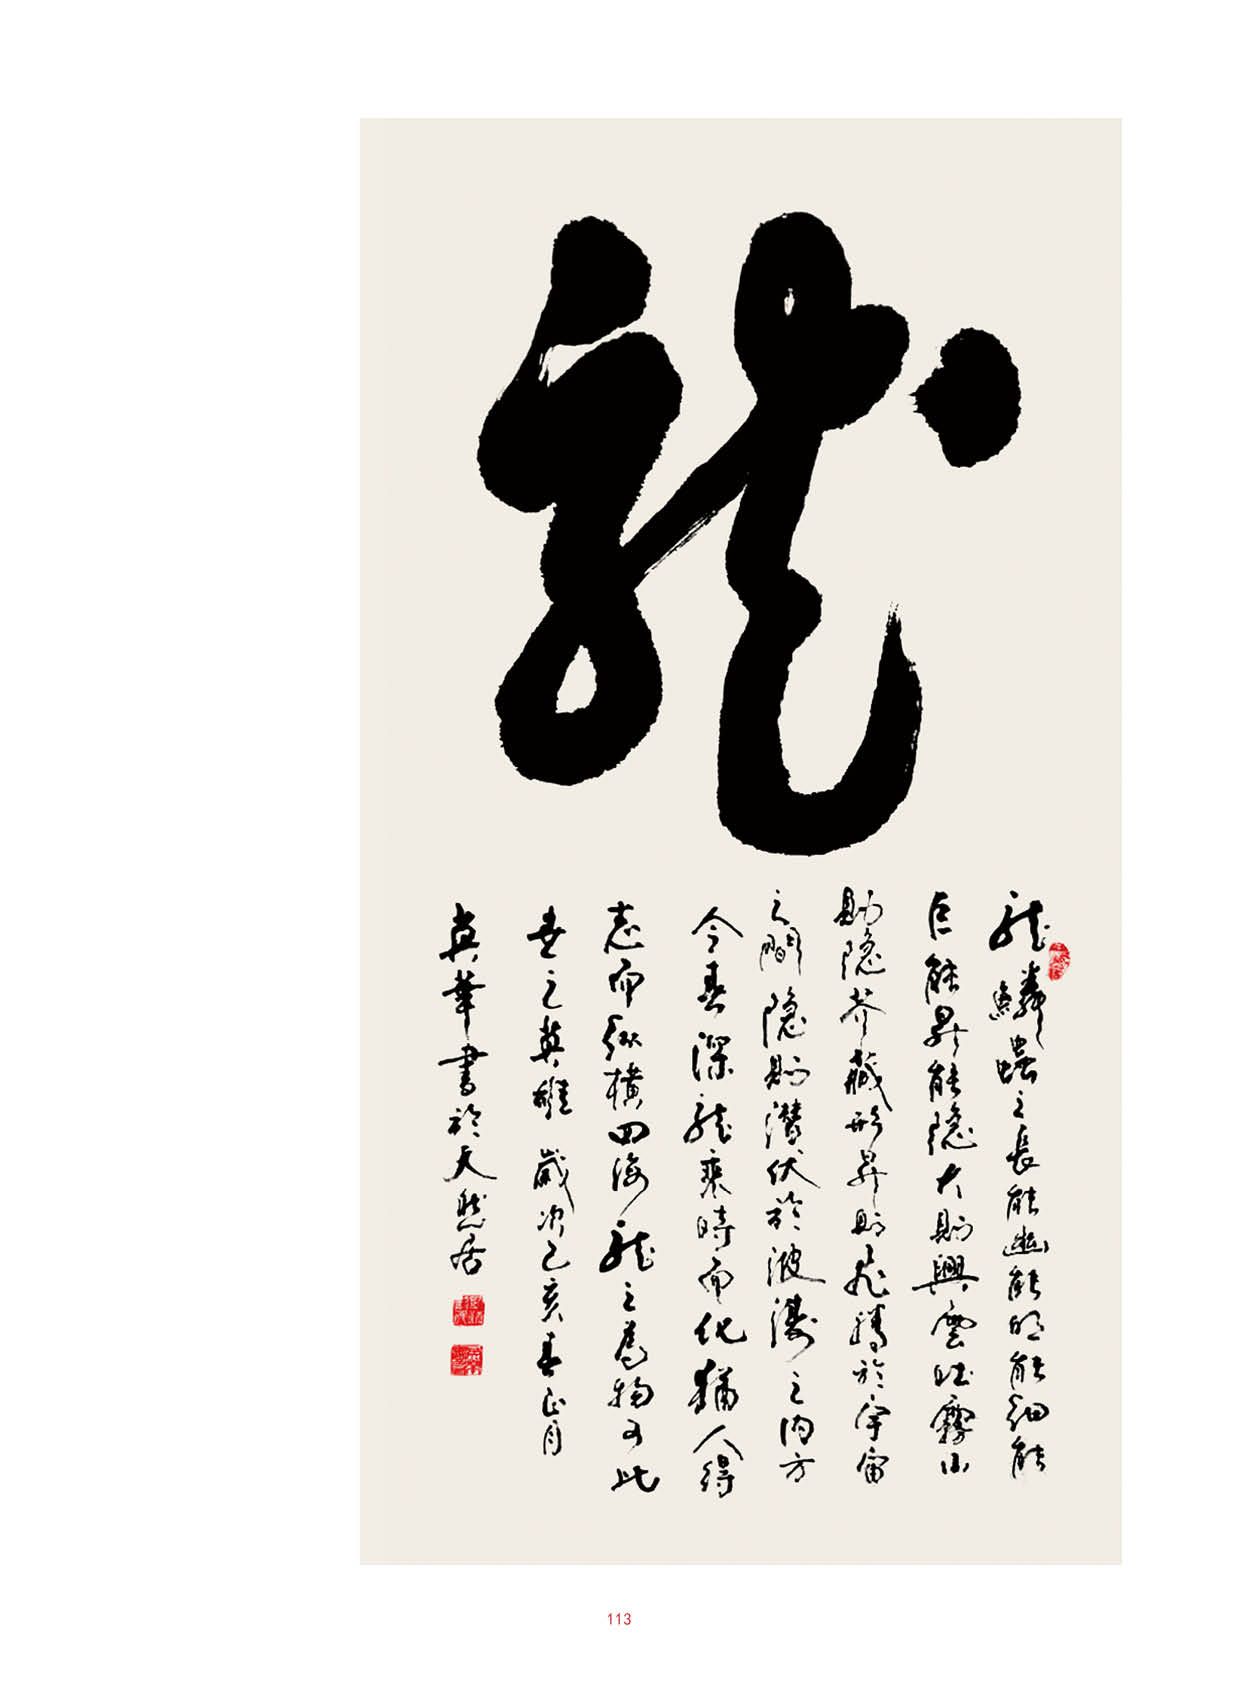 龍
龍鱗蟲之長能幽能明能細能
巨能昇能隱大則興雲吐霧小
則隱芥藏形昇則飛騰於宇宙
之間隱則潛伏於波濤之內方
今春深龍乘時而化猶人得
志而縱橫四海龍之為物可比
世之英雄 歲次乙亥春正月
英華書於天然居
113